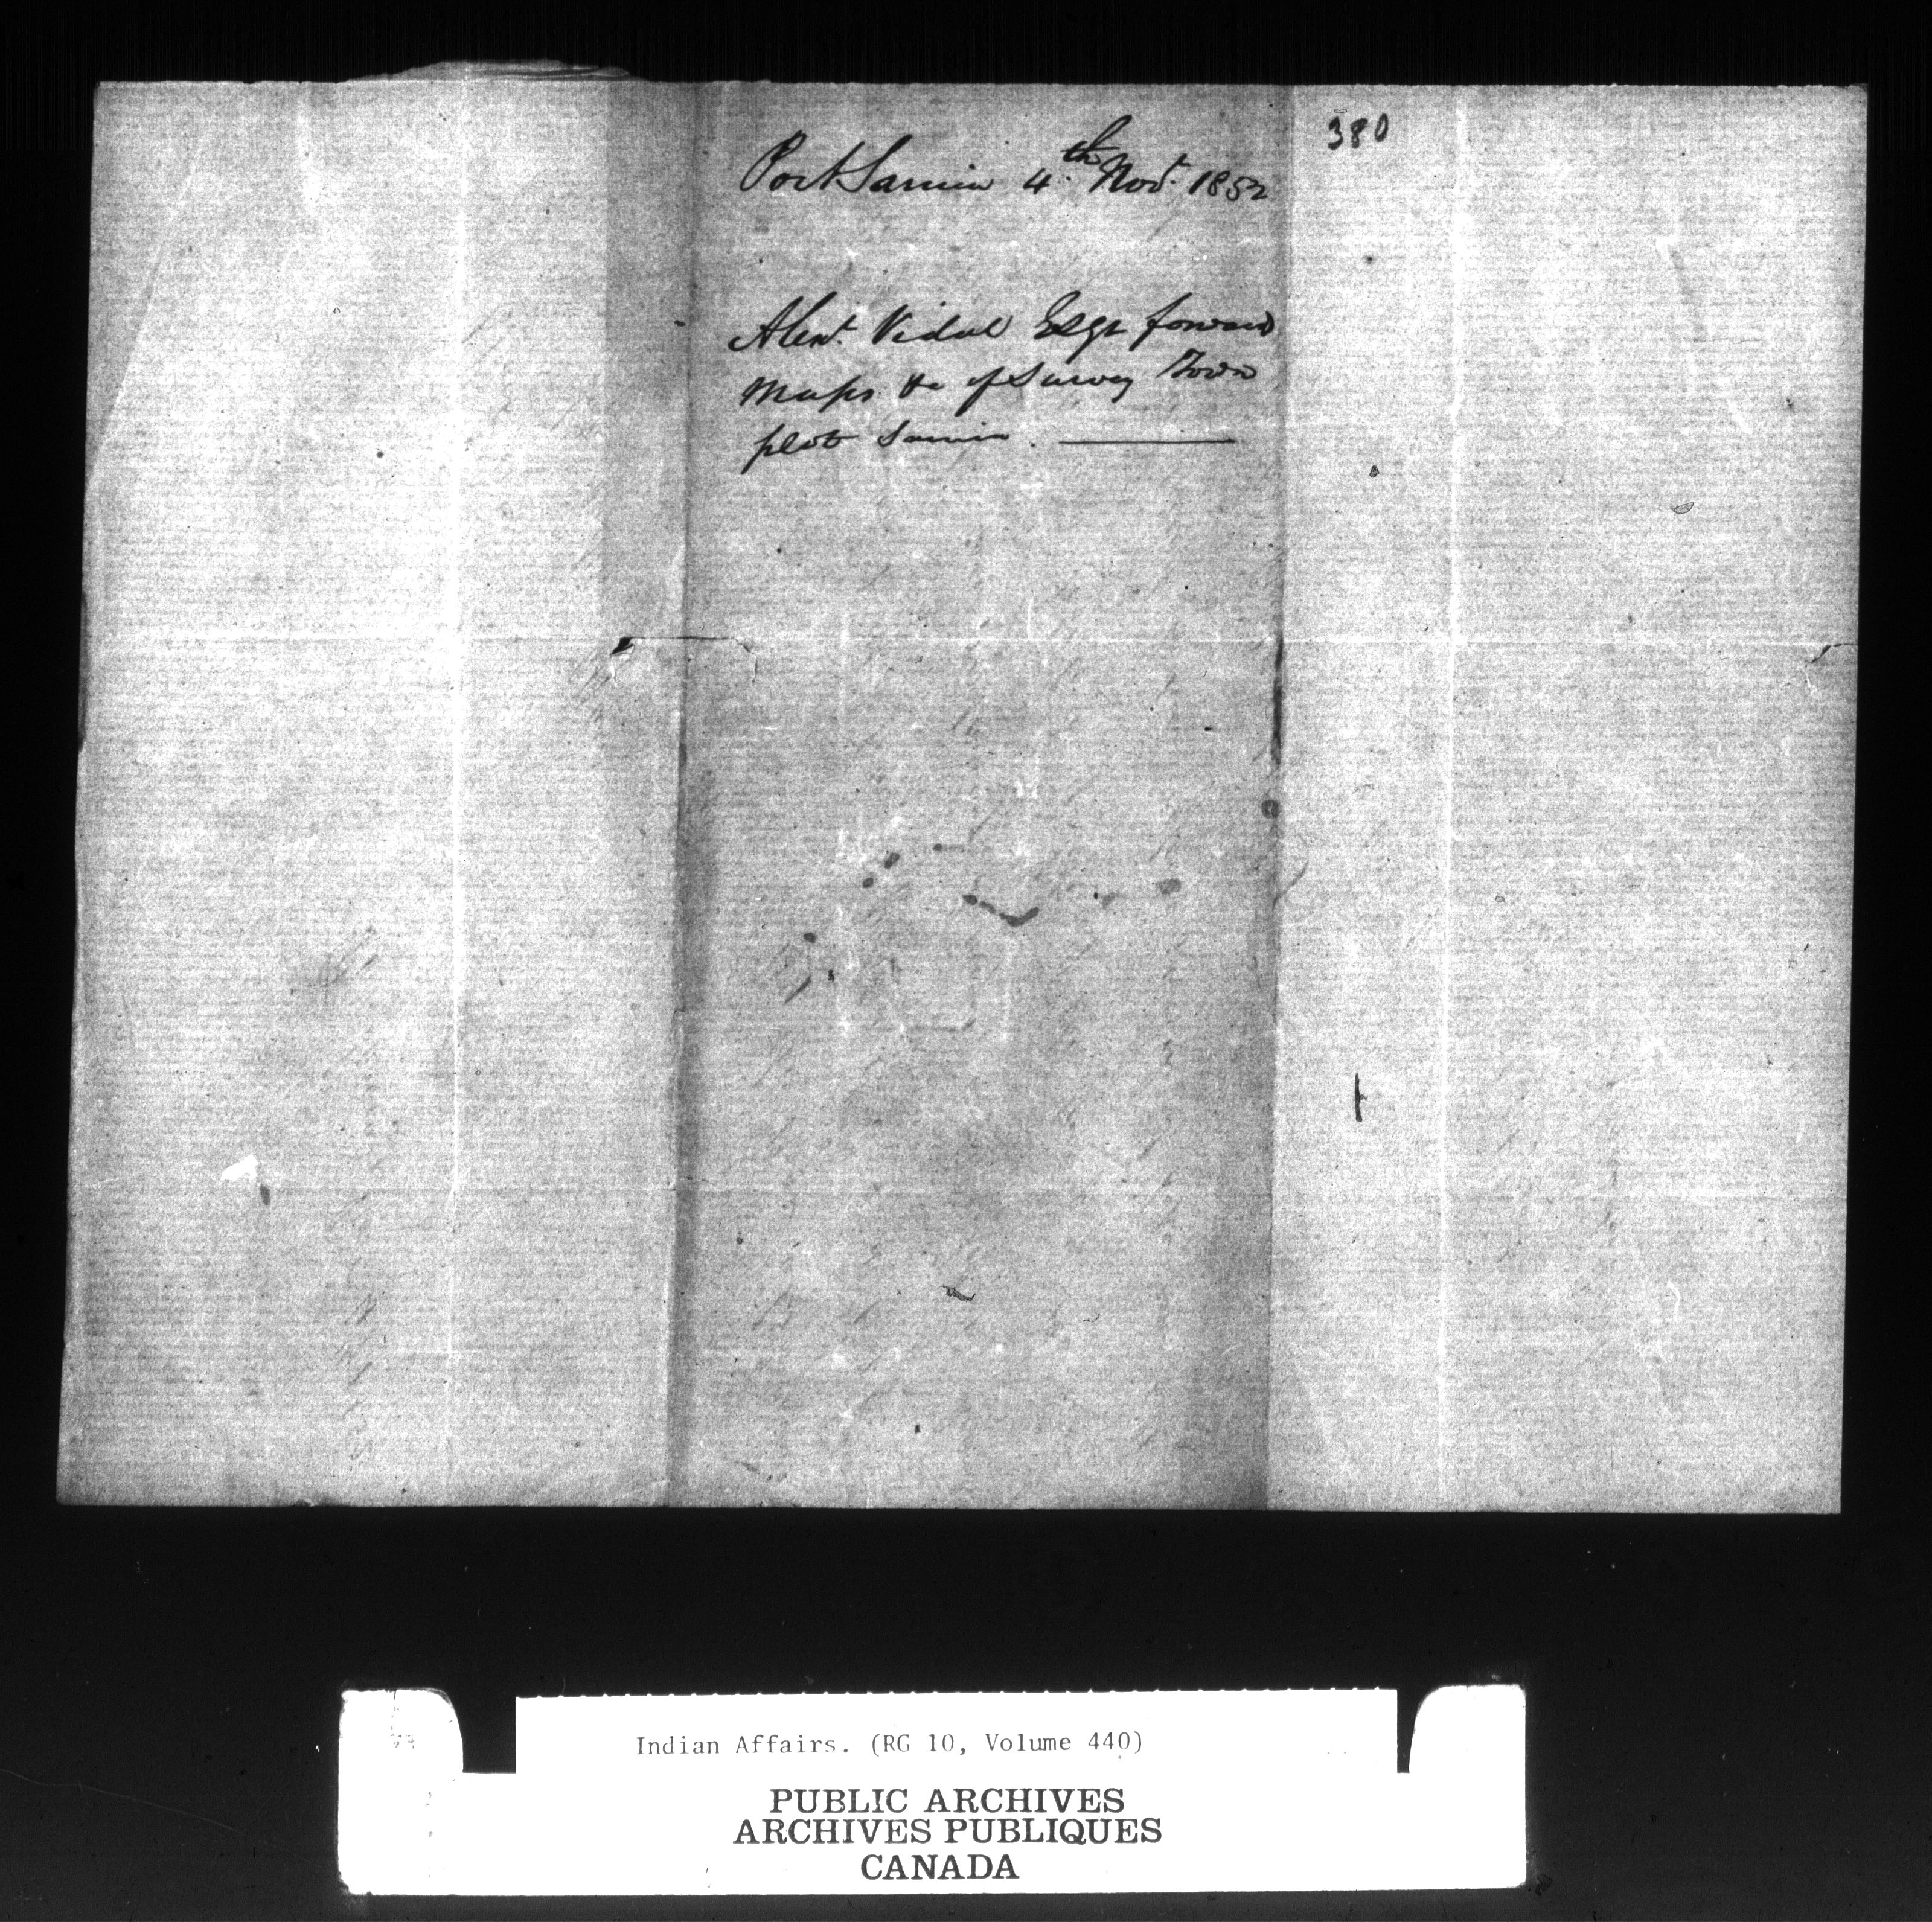 380
Port Sarnia 4th Novr. 1852
Alexr. Vidal Esqr forward
Maps &c of Survey Town
plot Sarnia.
Indian Affairs. (RG 10, Volume 440)
PUBLIC ARCHIVES
ARCHIVES PUBLIQUES
CANADA